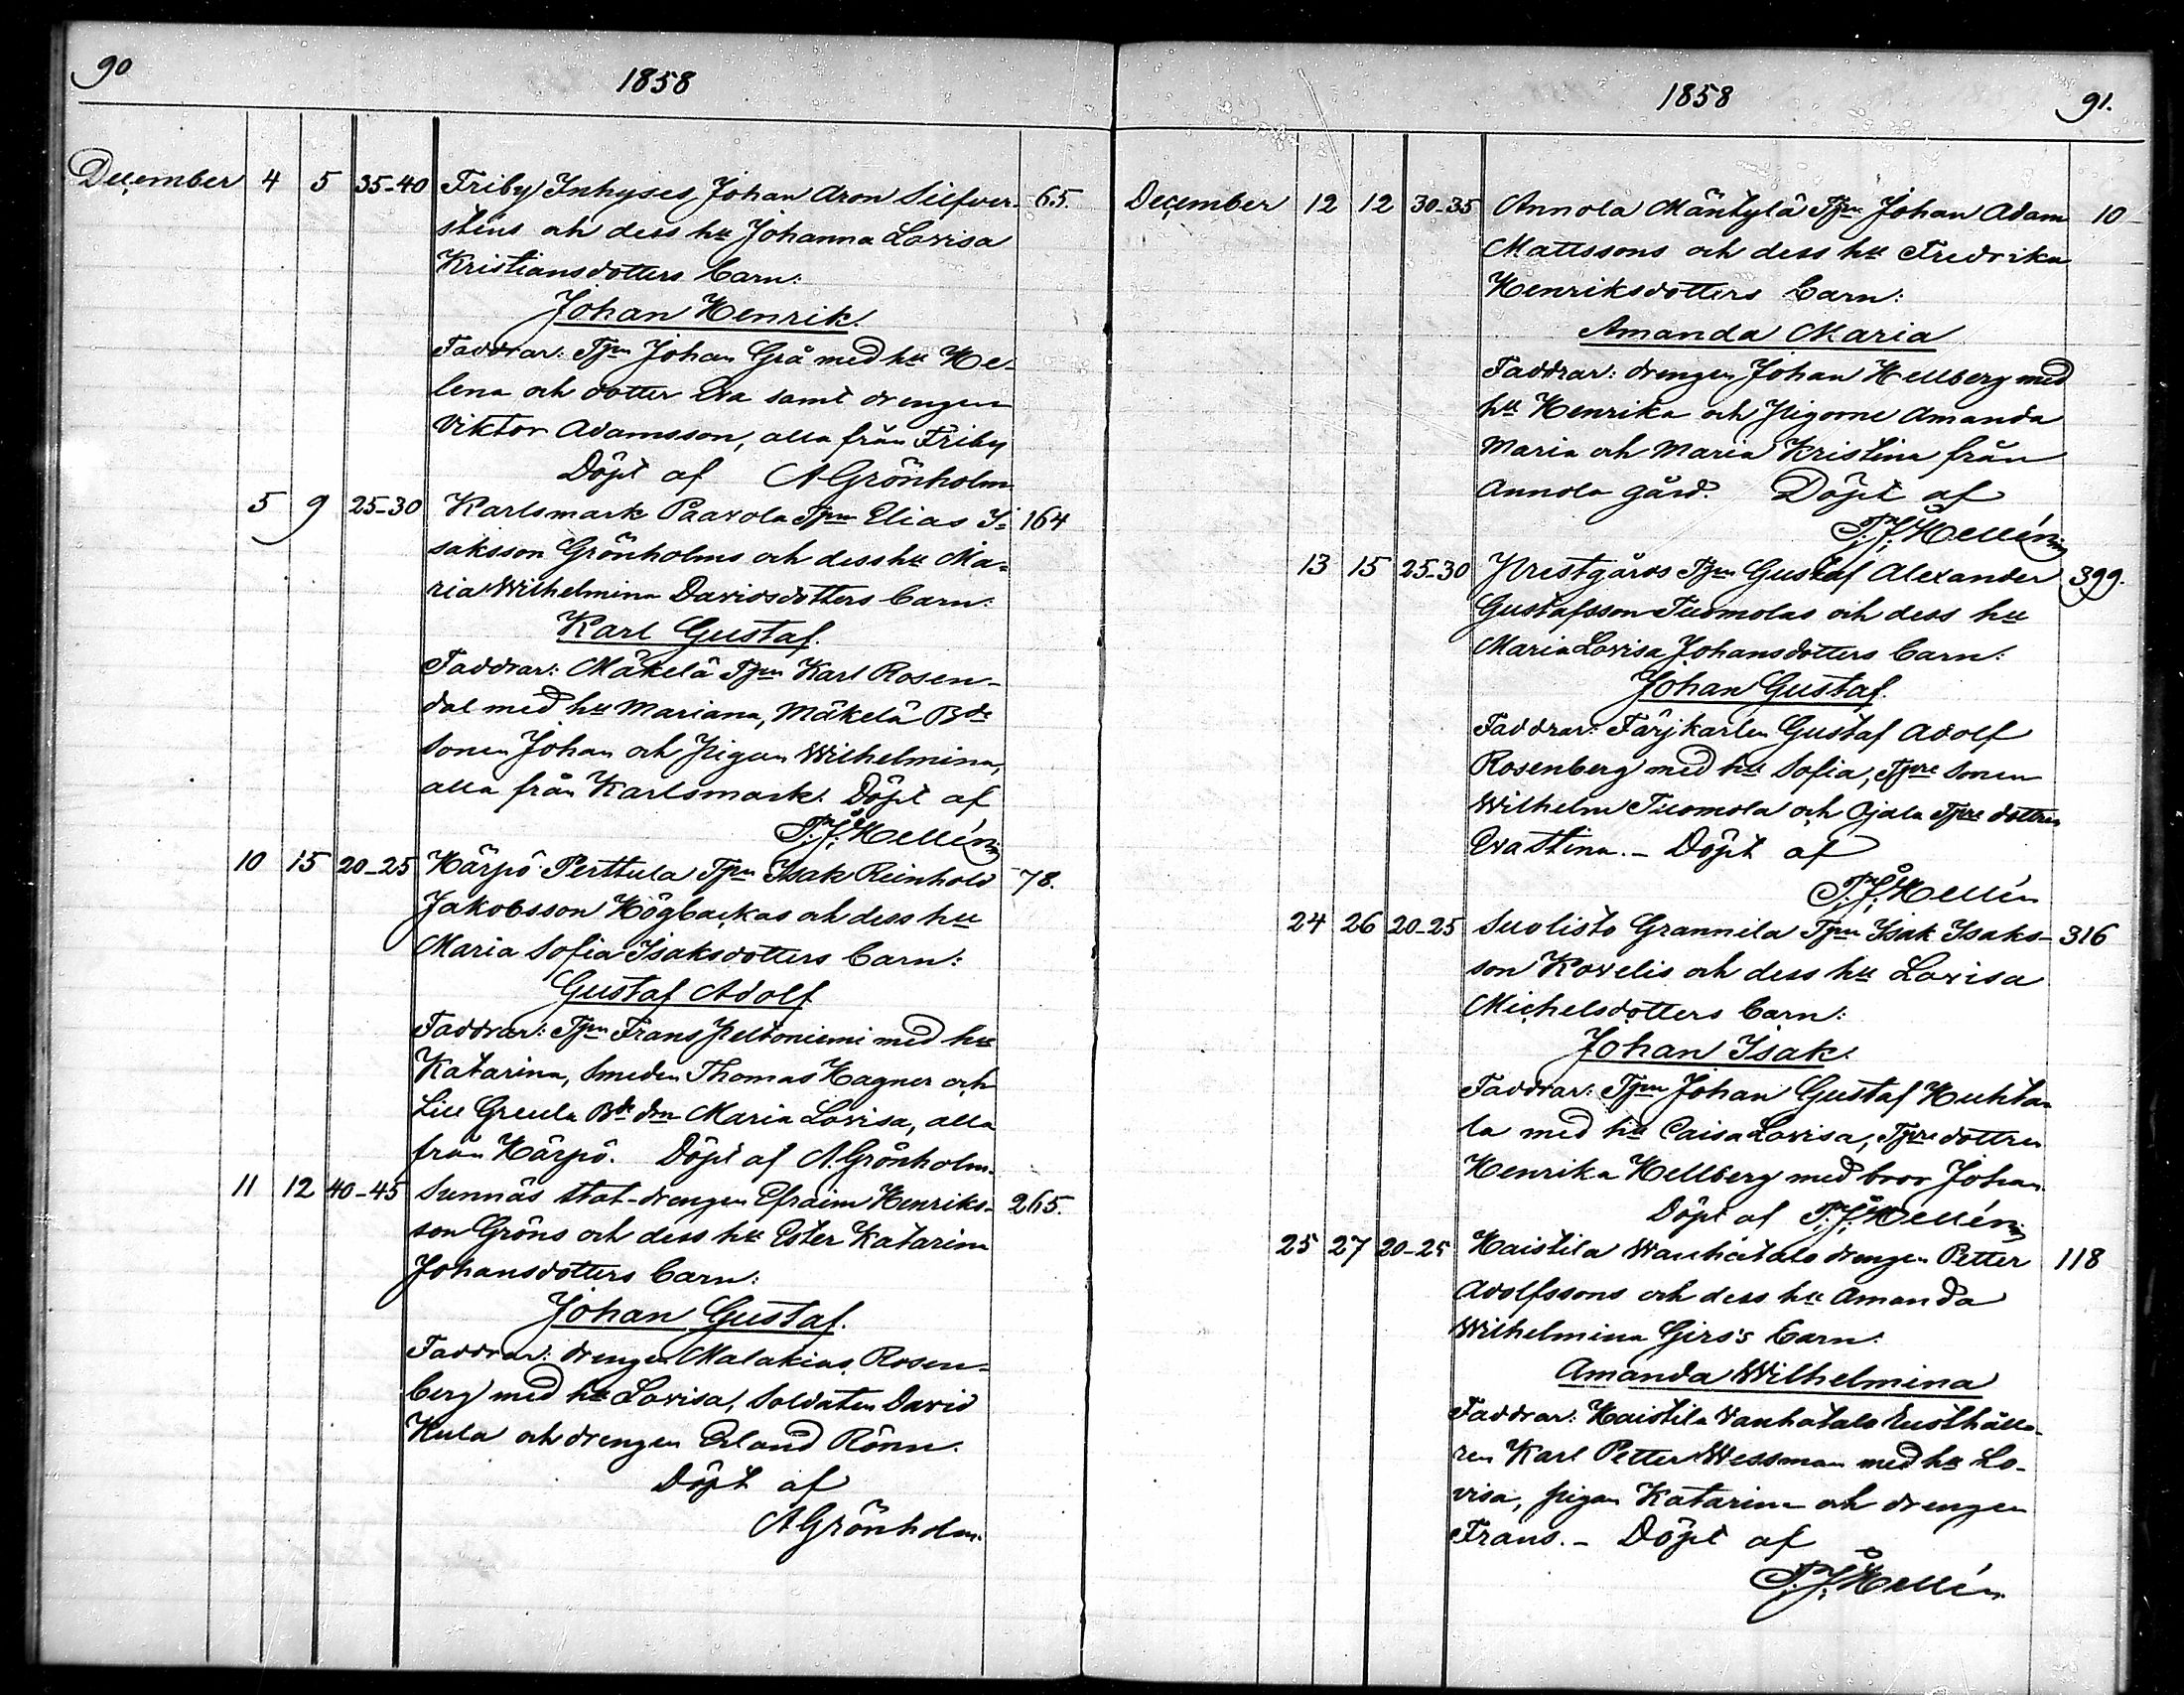 90
1858
December 4 5 35-40 Friby Inhyses Johan Aron Silfver- 65.
stens och dess hu Johanna Lovisa
Kristiansdotters barn:
Johan Henrik.
Faddrar: Tpn Johan Grå med hu He-
lena och dotter Eva samt drengen
Viktor Adamsson, alla från Friby
Döpt af A Grönholm
5 9 25-30 Karlsmark Paavola Tpn Elias I- 164
saksson Grönholms och dess hu Ma-
ria Wilhelmina Davidsdotters barn:
Karl Gustaf.
Faddrar: Mäkelä Tpn Karl Rosen-
dal med hu Mariana, Mäkelä Bde
sonen Johan och pigan Wilhelmina,
alla från Karlsmark. Döpt af
Hellén
10 15 20-25 Härpö Perttula Tpn Isak Reinhold 78.
Jakobsson Högbackas och dess hu
Maria Sofia Isaksdotters barn:
Gustaf Adolf
Faddrar: Tpn Frans Peltoniemi med hu
Katarina, Smeden Thomas Hagner och
Lill Greula Bde dn Maria Lovisa, alla
från Härpö. Döpt af A. Grönholm.
11 12 40-45 Sunnäs stat-drengen Efraim Henriks- 265.
son Gröns och dess hu Ester Katarina
Johansdotters barn:
Johan Gustaf.
Faddrar: drengen Malakias Rosen-
berg med hu Lovisa, Soldaten David
Kula och drengen Erland Rönn.
Döpt af
A Grönholm.
1858
91.
December 12 12 30-35 Annola Mäntylä Tpn Johan Adam 10
Mattssons och dess hu Fredrika
Henriksdotters barn:
Amanda Maria
Faddrar: drengen Johan Hellberg med
hu Henrika och pigorne Amanda
Maria och Maria Kristina från
Annola gård. Döpt af
Hellén
13 15 25-30 Prestgårds Tpn Gustaf Alexander 399.
Gustafsson Tuomolas och dess hu
Maria Lovisa Johansdotters barn:
Johan Gustaf.
Faddrar: Färjkarlen Gustaf Adolf
Rosenberg med hu Sofia, Tpre sonen
Wilhelm Tuomola och Ojala Tpre dottren
Eva Stina. - Döpt af
Hellén
24 26 20-25 Suolisto Grannila Tpn Isak Isaks- 316
son Kovelis och dess hu Lovisa
Michelsdotters barn:
Johan Isak.
Faddrar: Tpn Johan Gustaf Huhta-
la med hu Caisa Lovisa, Tpre dottren
Henrika Hellberg med bror Johan.
Döpt af Hellén
25 27 20-25 Haistila Wanhatalo drengen Petter 118
Adolfssons och dess hu Amanda
Wilhelmina Girs's barn:
Amanda Wilhelmina
Faddrar: Haistila Vanhatalo Rusthålla-
ren Karl Petter Wessman med hu Lo-
visa, pigan Katarina och drengen
Frans. - Döpt af
Hellén